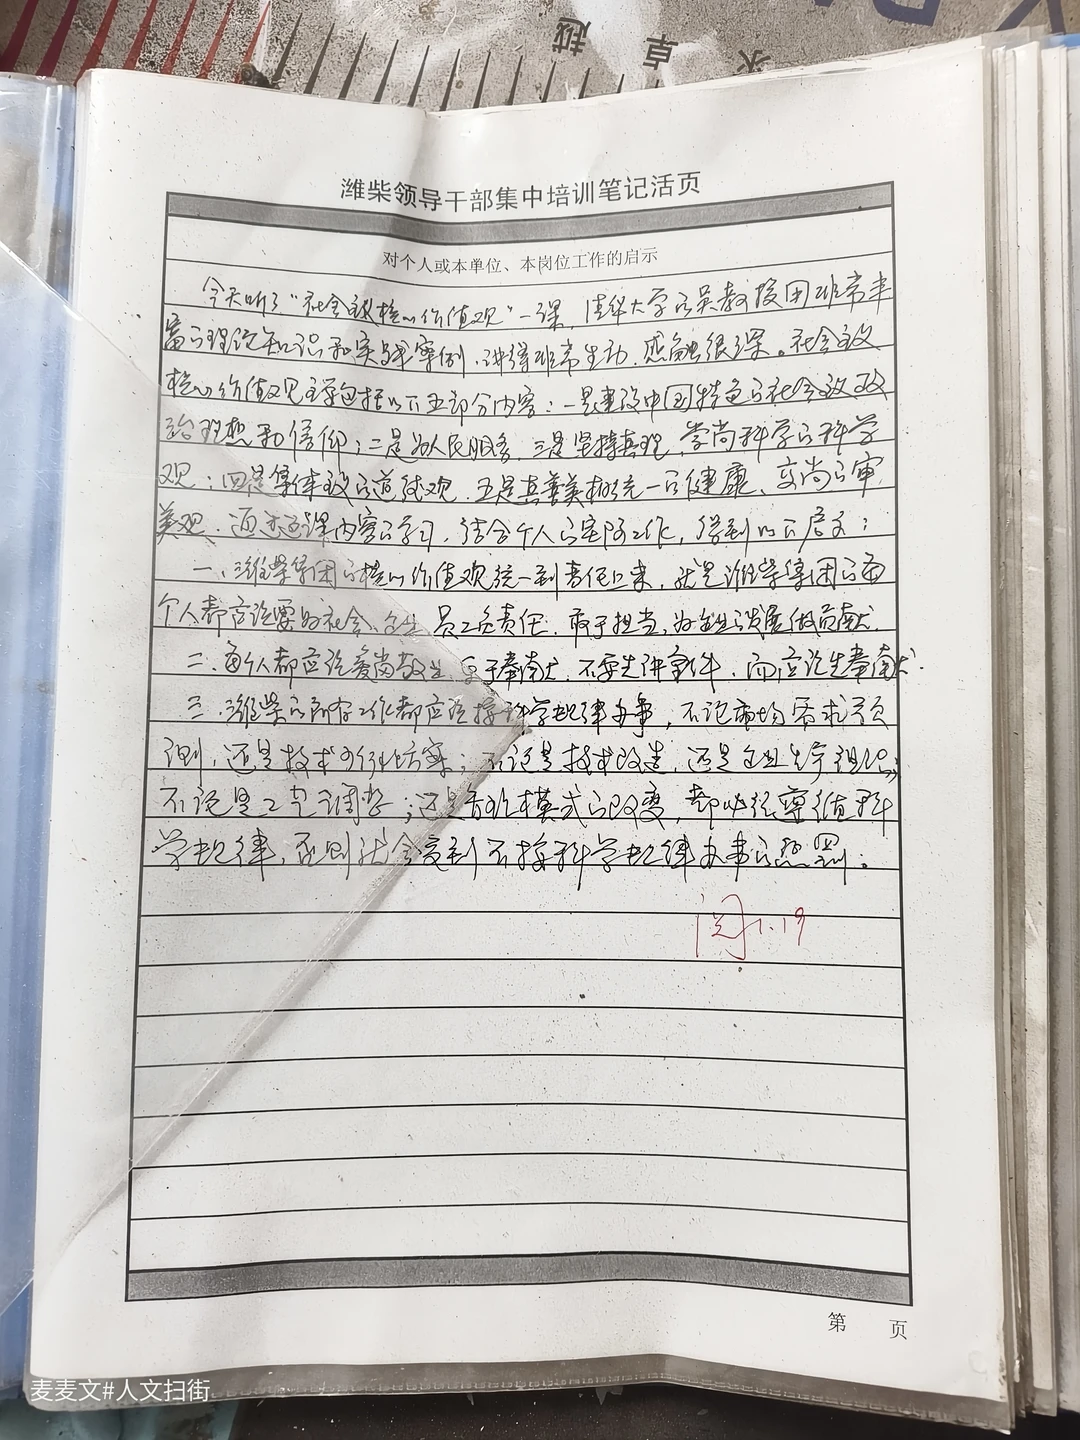 卓越
潍柴领导干部集中培训笔记活页
对个人或本单位、本岗位工作的启示
今天听了“社会主义核心价值观”一课，清华大学的吴教授用非常丰
富的理论知识和实战案例，讲得非常生动，感触很深。社会主义
核心价值观主要包括以下五部分内容：一是建设中国特色的社会主义政
治理想和信仰；二是为人民服务，三是坚持真理，崇尚科学的科学
观；四是集体主义的道德观，五是真善美相统一的健康、高尚的审
美观。通过这课内容的学习，结合个人的实际工作，得到以下启示：
一、潍柴集团的核心价值观统一到责任上来，就是潍柴集团的每
个人都应该要为社会、企业、员工负责任，敢于担当，为企业的发展做贡献。
二、每个人都应该爱岗敬业、乐于奉献，不要先讲条件，而应该先奉献。
三、潍柴的所有工作都应该按科学规律办事，不论市场需求预
测，还是技术可行性方案；不论是技术改造，还是企业生产组织；
不论是工艺调整；还是管理模式的改变，都必须遵循科
学规律，否则就会受到不按科学规律办事的惩罚。
阅 1.19
第 页
麦麦文#人文扫街